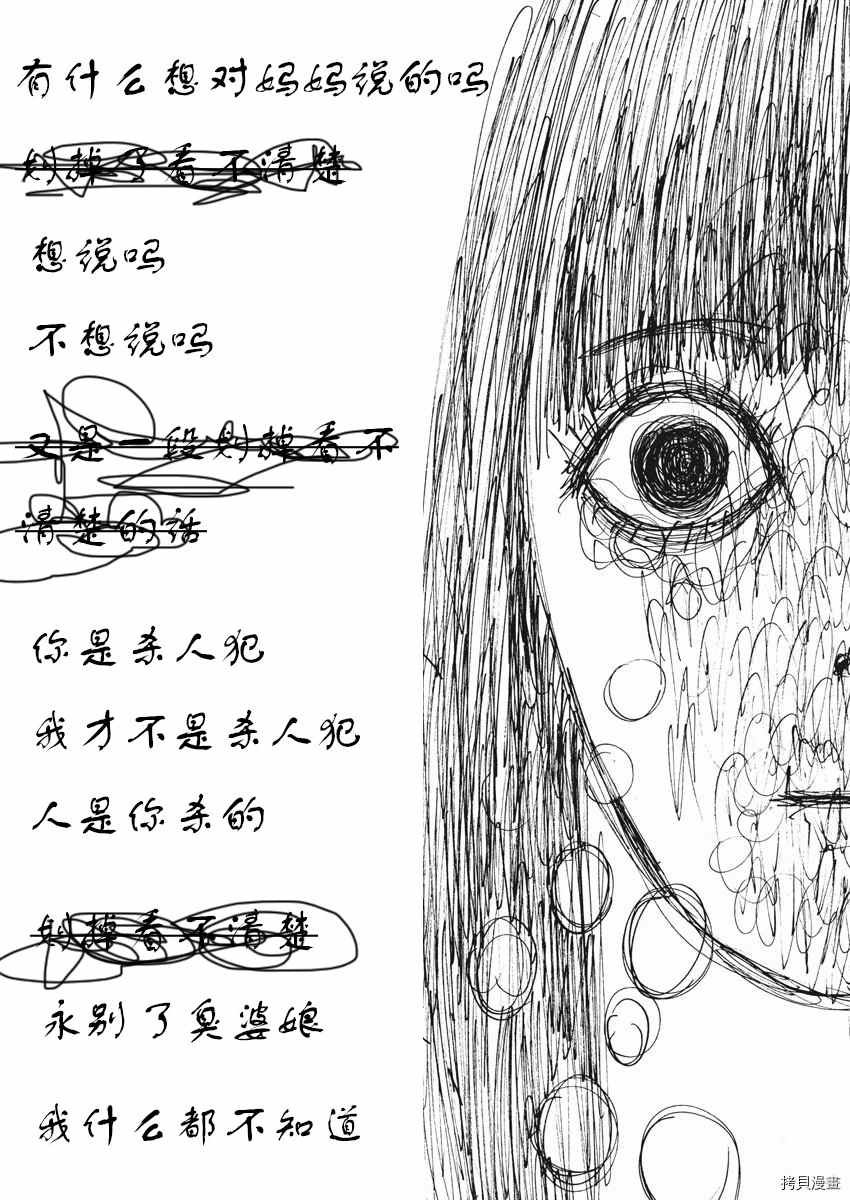 有什么想对妈妈说的吗
划掉了看不清楚
想说吗
不想说吗
又是一段划掉看不
清楚的话
你是杀人犯
我才不是杀人犯
人是你杀的
划掉看不清楚
永别了臭婆娘
我什么都不知道
拷貝漫畫